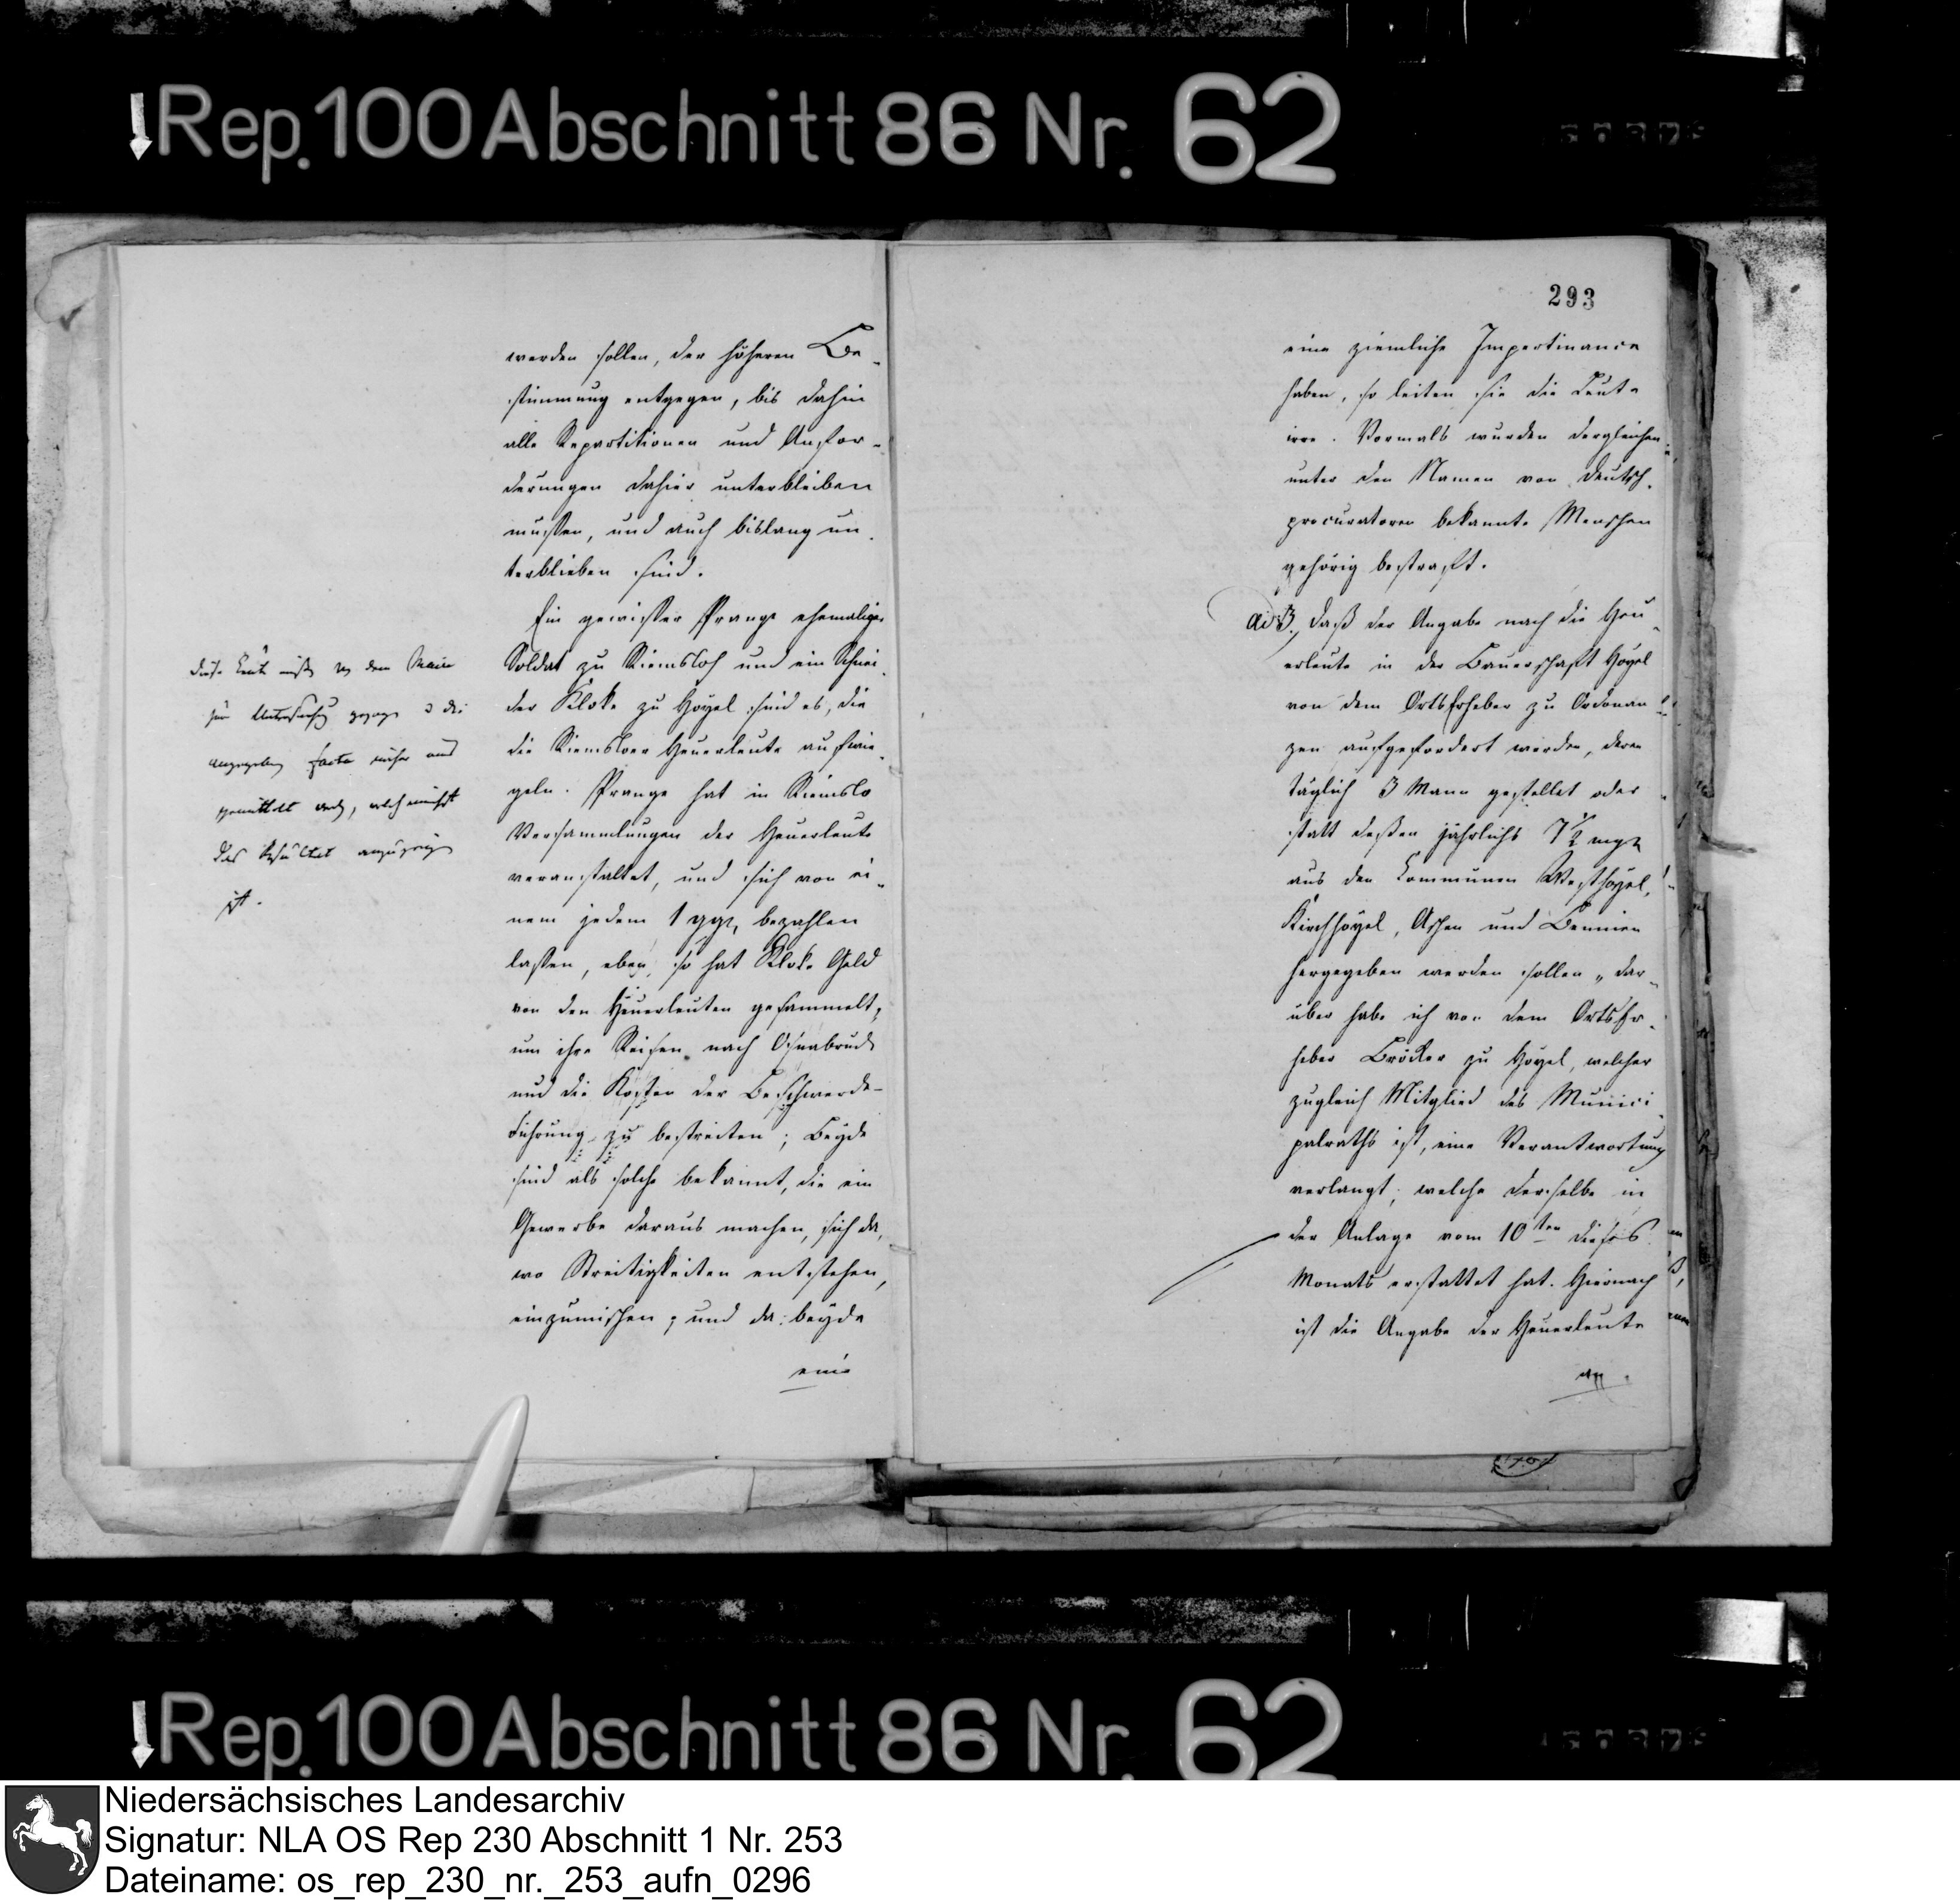 Rep. 100 Abschnitt 86 Nr. 62
werden sollen, der höheren Be-
stimmung entgegen, bis dahin
alle Repartitionen und Anfor-
derungen dahier unterbleiben
müßen, und auch bislang un-
terblieben sind.
Ein gewißer Prange ehemaliger
Soldat zu Riemsloh und ein Schnei-
der Kloke zu Hoyel sind es, die
die Riemsloer Heuerleute aufwie-
geln. Prange hat in Riemslo
Versammlungen der Heuerleute
veranstaltet, und sich von ei-
nem jedem 1 ggr, bezahlen
laßen, eben so hat Kloke Geld
von den Heuerleuten gesammelt,
um ihre Reisen nach Osnabrück
und die Kosten der Beschwerde-
führung zu bestreiten; Beyde
sind als solche bekannt, die ein
Gewerbe daraus machen, sich da,
wo Streitigkeiten entstehen,
einzumischen; und da beyde
eine
diese Leute von dem Maire
zur Untersuchung gezogen die
angegebenen facta näher aus
gemittelt
das Resultat
ist.
293
eine ziemliche Impertinance
haben, so leiten sie die Leute
irre. Vormals wurden dergleichen
unter den Namen von Deutsch-
procuratoren bekannte Menschen
gehörig bestraft.
ad 3, daß der Angabe nach die Heu-
erleute in der Bauerschaft Hoyel
von dem Ortserheber zu Ordonan-
zen aufgefordert werden, deren
täglich 3 Mann gestellet oder
statt deßen jährlichs 7 1/2 mgr
aus den Communen Westhoyel,
Kirchhoyel, Aschen und Bennien
hergegeben werden sollen „ dar-
über habe ich von dem Ortser-
heber Bröcker zu Hoyel, welcher
zugleich Mitglied des Munici-
palraths ist, eine Verantwortung
verlangt, welche derselbe in
der Anlage vom 10ten dieses
Monats erstattet hat. Hiernach
ist die Angabe der Heuerleute
Rep. 100 Abschnitt 86 Nr. 62
Niedersächsisches Landesarchiv
Signatur: NLA OS Rep 230 Abschnitt 1 Nr. 253
Dateiname: os_rep_230_nr._253_aufn_0296